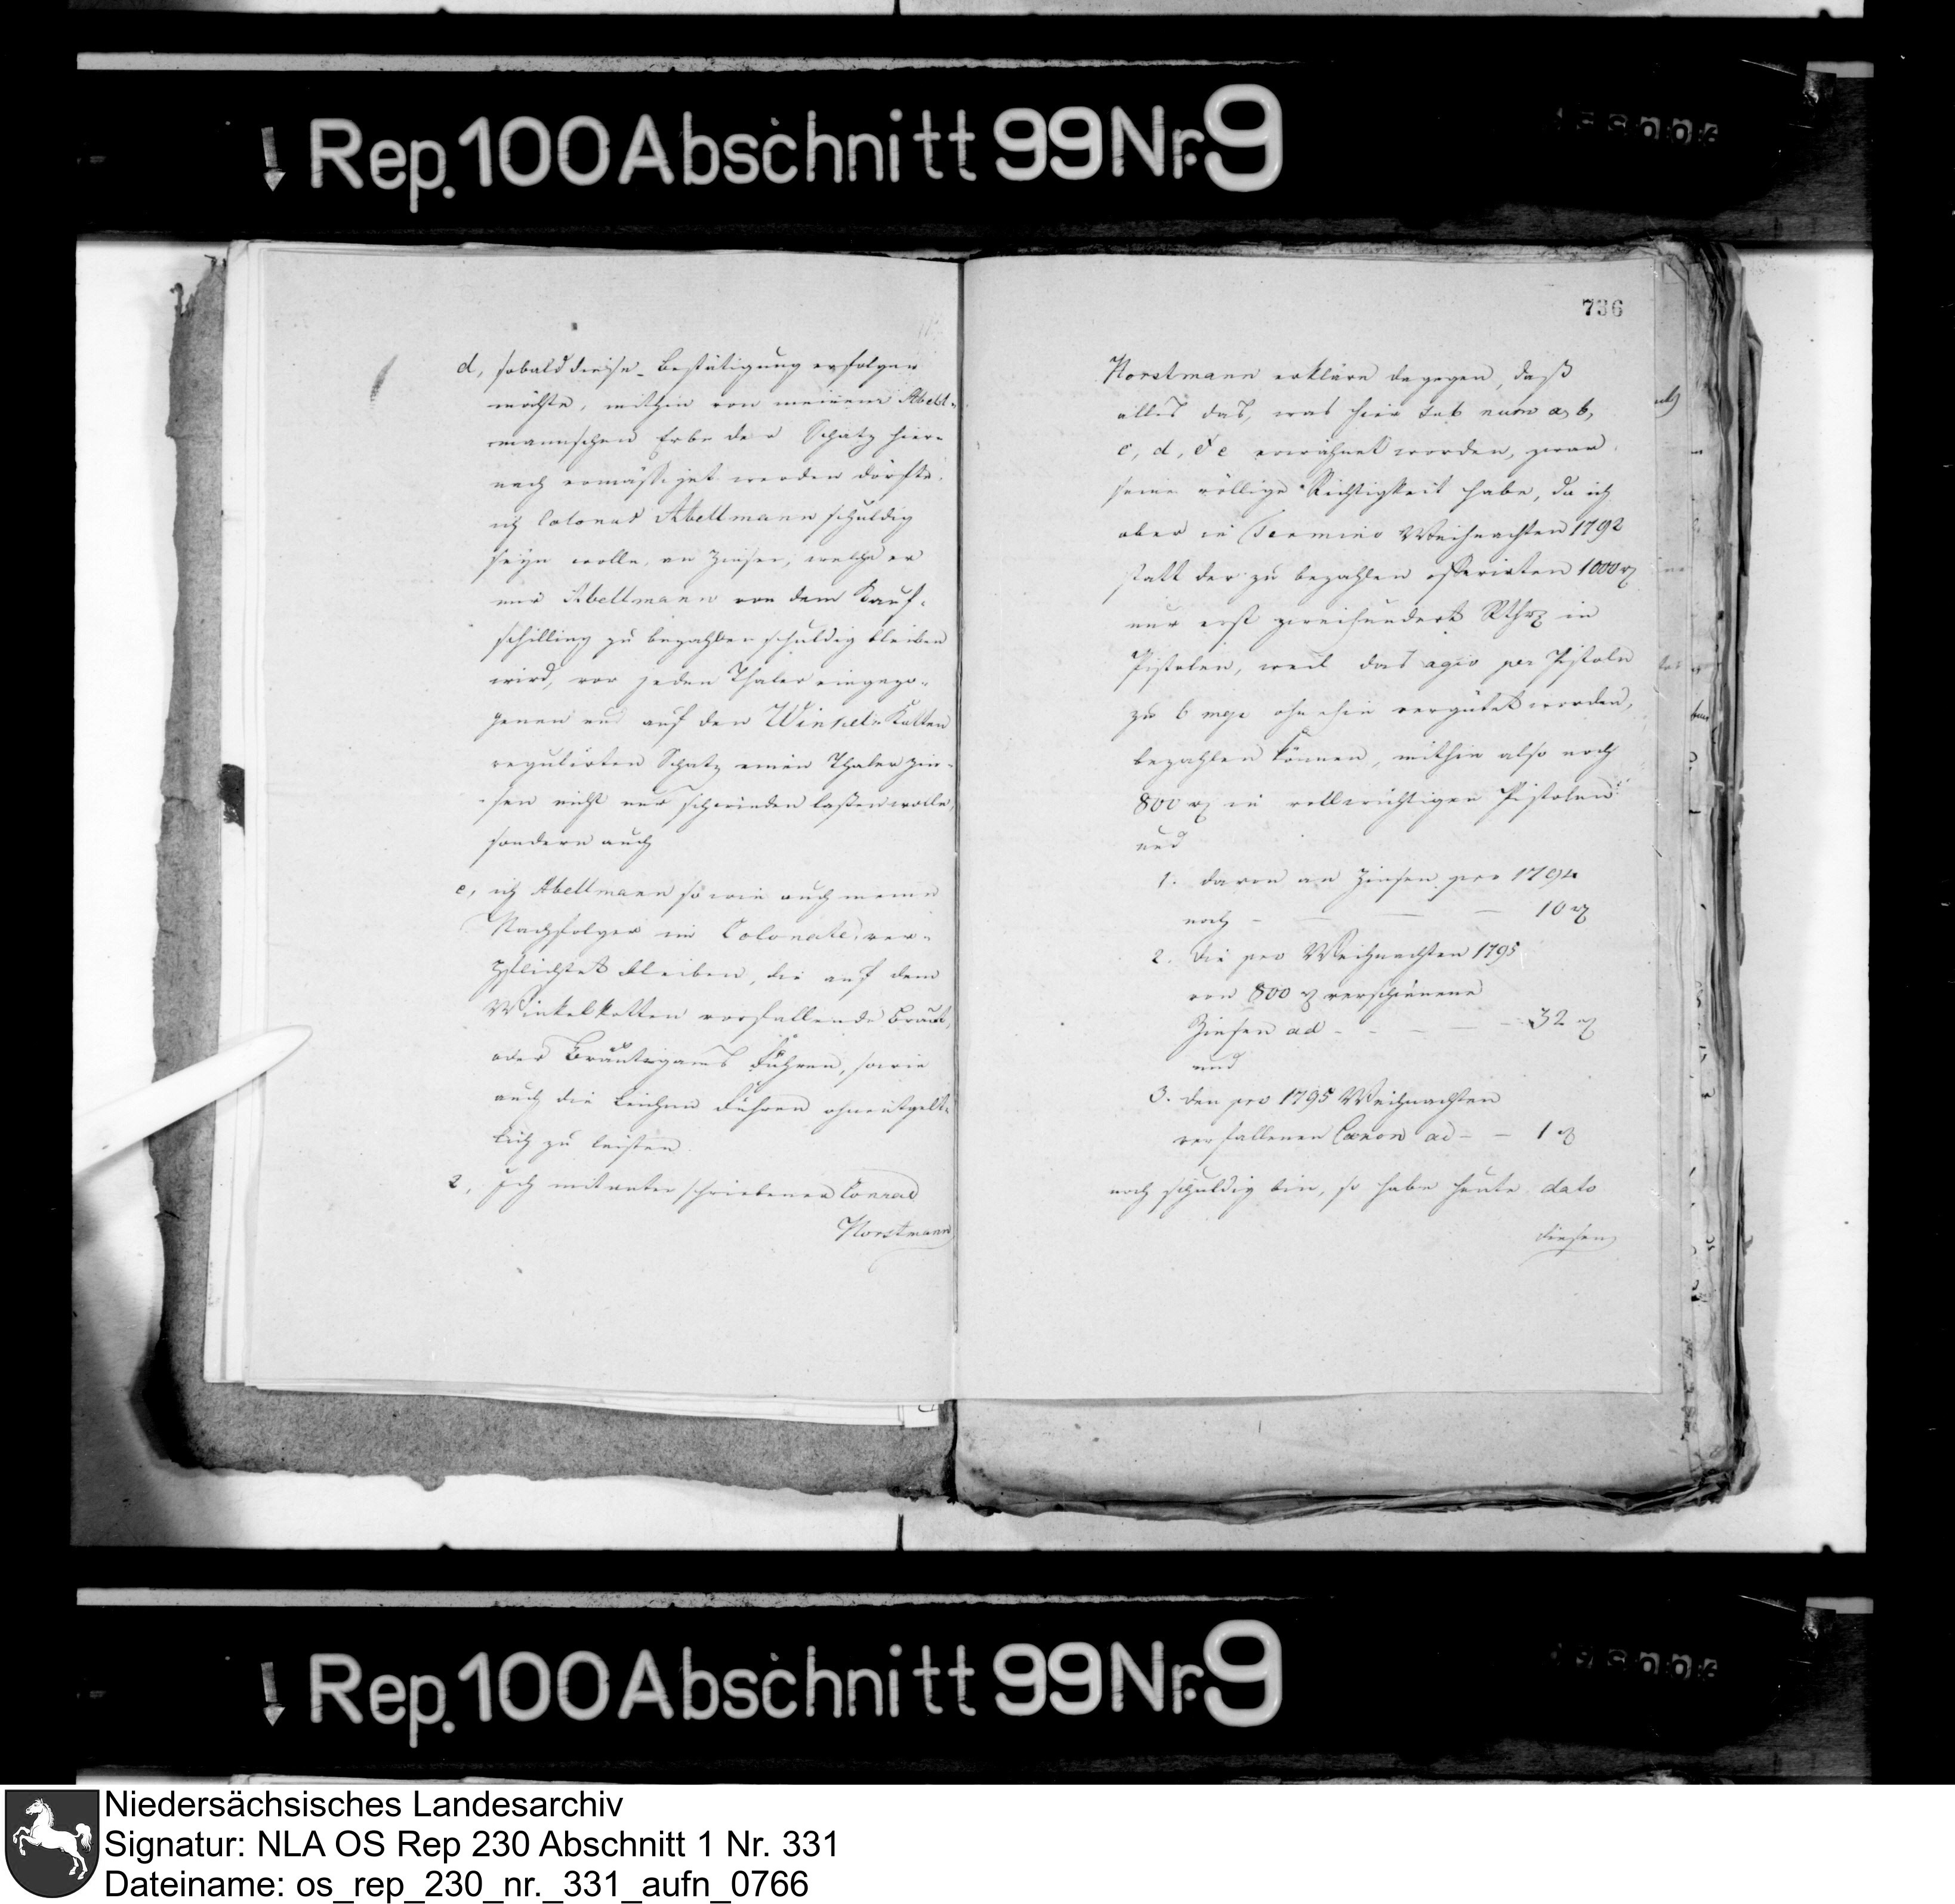 Rep. 100 Abschnitt 99 Nr. 9
d, sobald diese Bestätigung erfolgen
möchte, mithin von meinem Abelt-
mannschen Erbe der Schatz hier-
nach ermässiget werden dörfte,
ich Colonus Abeltmann schuldig
seyn wolle, an Zinsen, welche er
mir Abeltmann von dem Kauf-
schilling zu bezahlen schuldig bleiben
wird, vor jeden Thaler eingezo-
genen und auf den Winkel-Kotten
regulirten Schatz einen Thaler Zin-
sen nicht nur schwinden lassen wolle,
sondern auch
e, ich Abeltmann so wie auch meine
Nachfolger im Colonate, ver-
pflichtet bleiben, die auf dem
Winkelkotten vorfallende Braut,
oder Bräutigams Fuhren, sowie
auch die Leichen Fuhren ohnentgelt-
lich zu leisten
2, Ich mitunterschriebener Conrad
Horstmann
736
Horstmann erkläre dagegen, daß
alles das, was hier sub num a, b,
c, d, & e erwähnet worden, zwar
seine völlige Richtigkeit habe, da ich
aber in Termino Weihnachten 1792
statt der zu bezahlen offerirten 1000 rt
nur erst zweihundert Rthlr in
Pistolen, weil das agio per Pistole
zu 6 mgr ohnehin vergütet worden,
bezahlen können, mithin also noch
800 rt in vollwichtigen Pistolen
und
1. davon an Zinsen pro 1794
noch - — — — 10 rt
2. die pro Weihnachten 1795
von 800 rt verschienene
Zinsen ad - - — — — 32 rt
und
3. den pro 1795 Weihnachten
verfallenen Canon ad - — 1 rt
noch schuldig bin, so habe heute dato
diesen
Rep. 100 Abschnitt 99 Nr. 9
Niedersächsisches Landesarchiv
Signatur: NLA OS Rep 230 Abschnitt 1 Nr. 331
Dateiname: os_rep_230_nr._331_aufn_0766